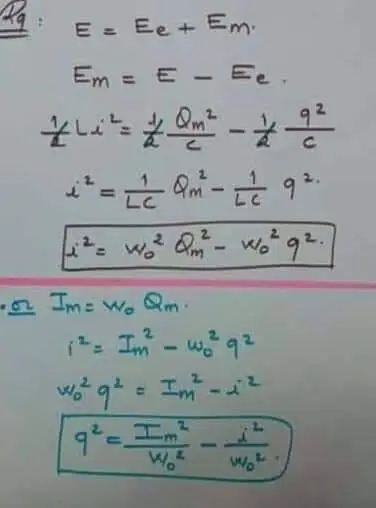 Rq : E = Ee + Em.
Em = E - Ee.
1/2 Li² = 1/2 Qm²/C - 1/2 q²/C
i² = 1/LC Qm² - 1/LC q².
i² = w₀² Qm² - w₀² q².
. or Im = w₀ Qm.
i² = Im² - w₀² q²
w₀² q² = Im² - i²
q² = Im²/w₀² - i²/w₀².